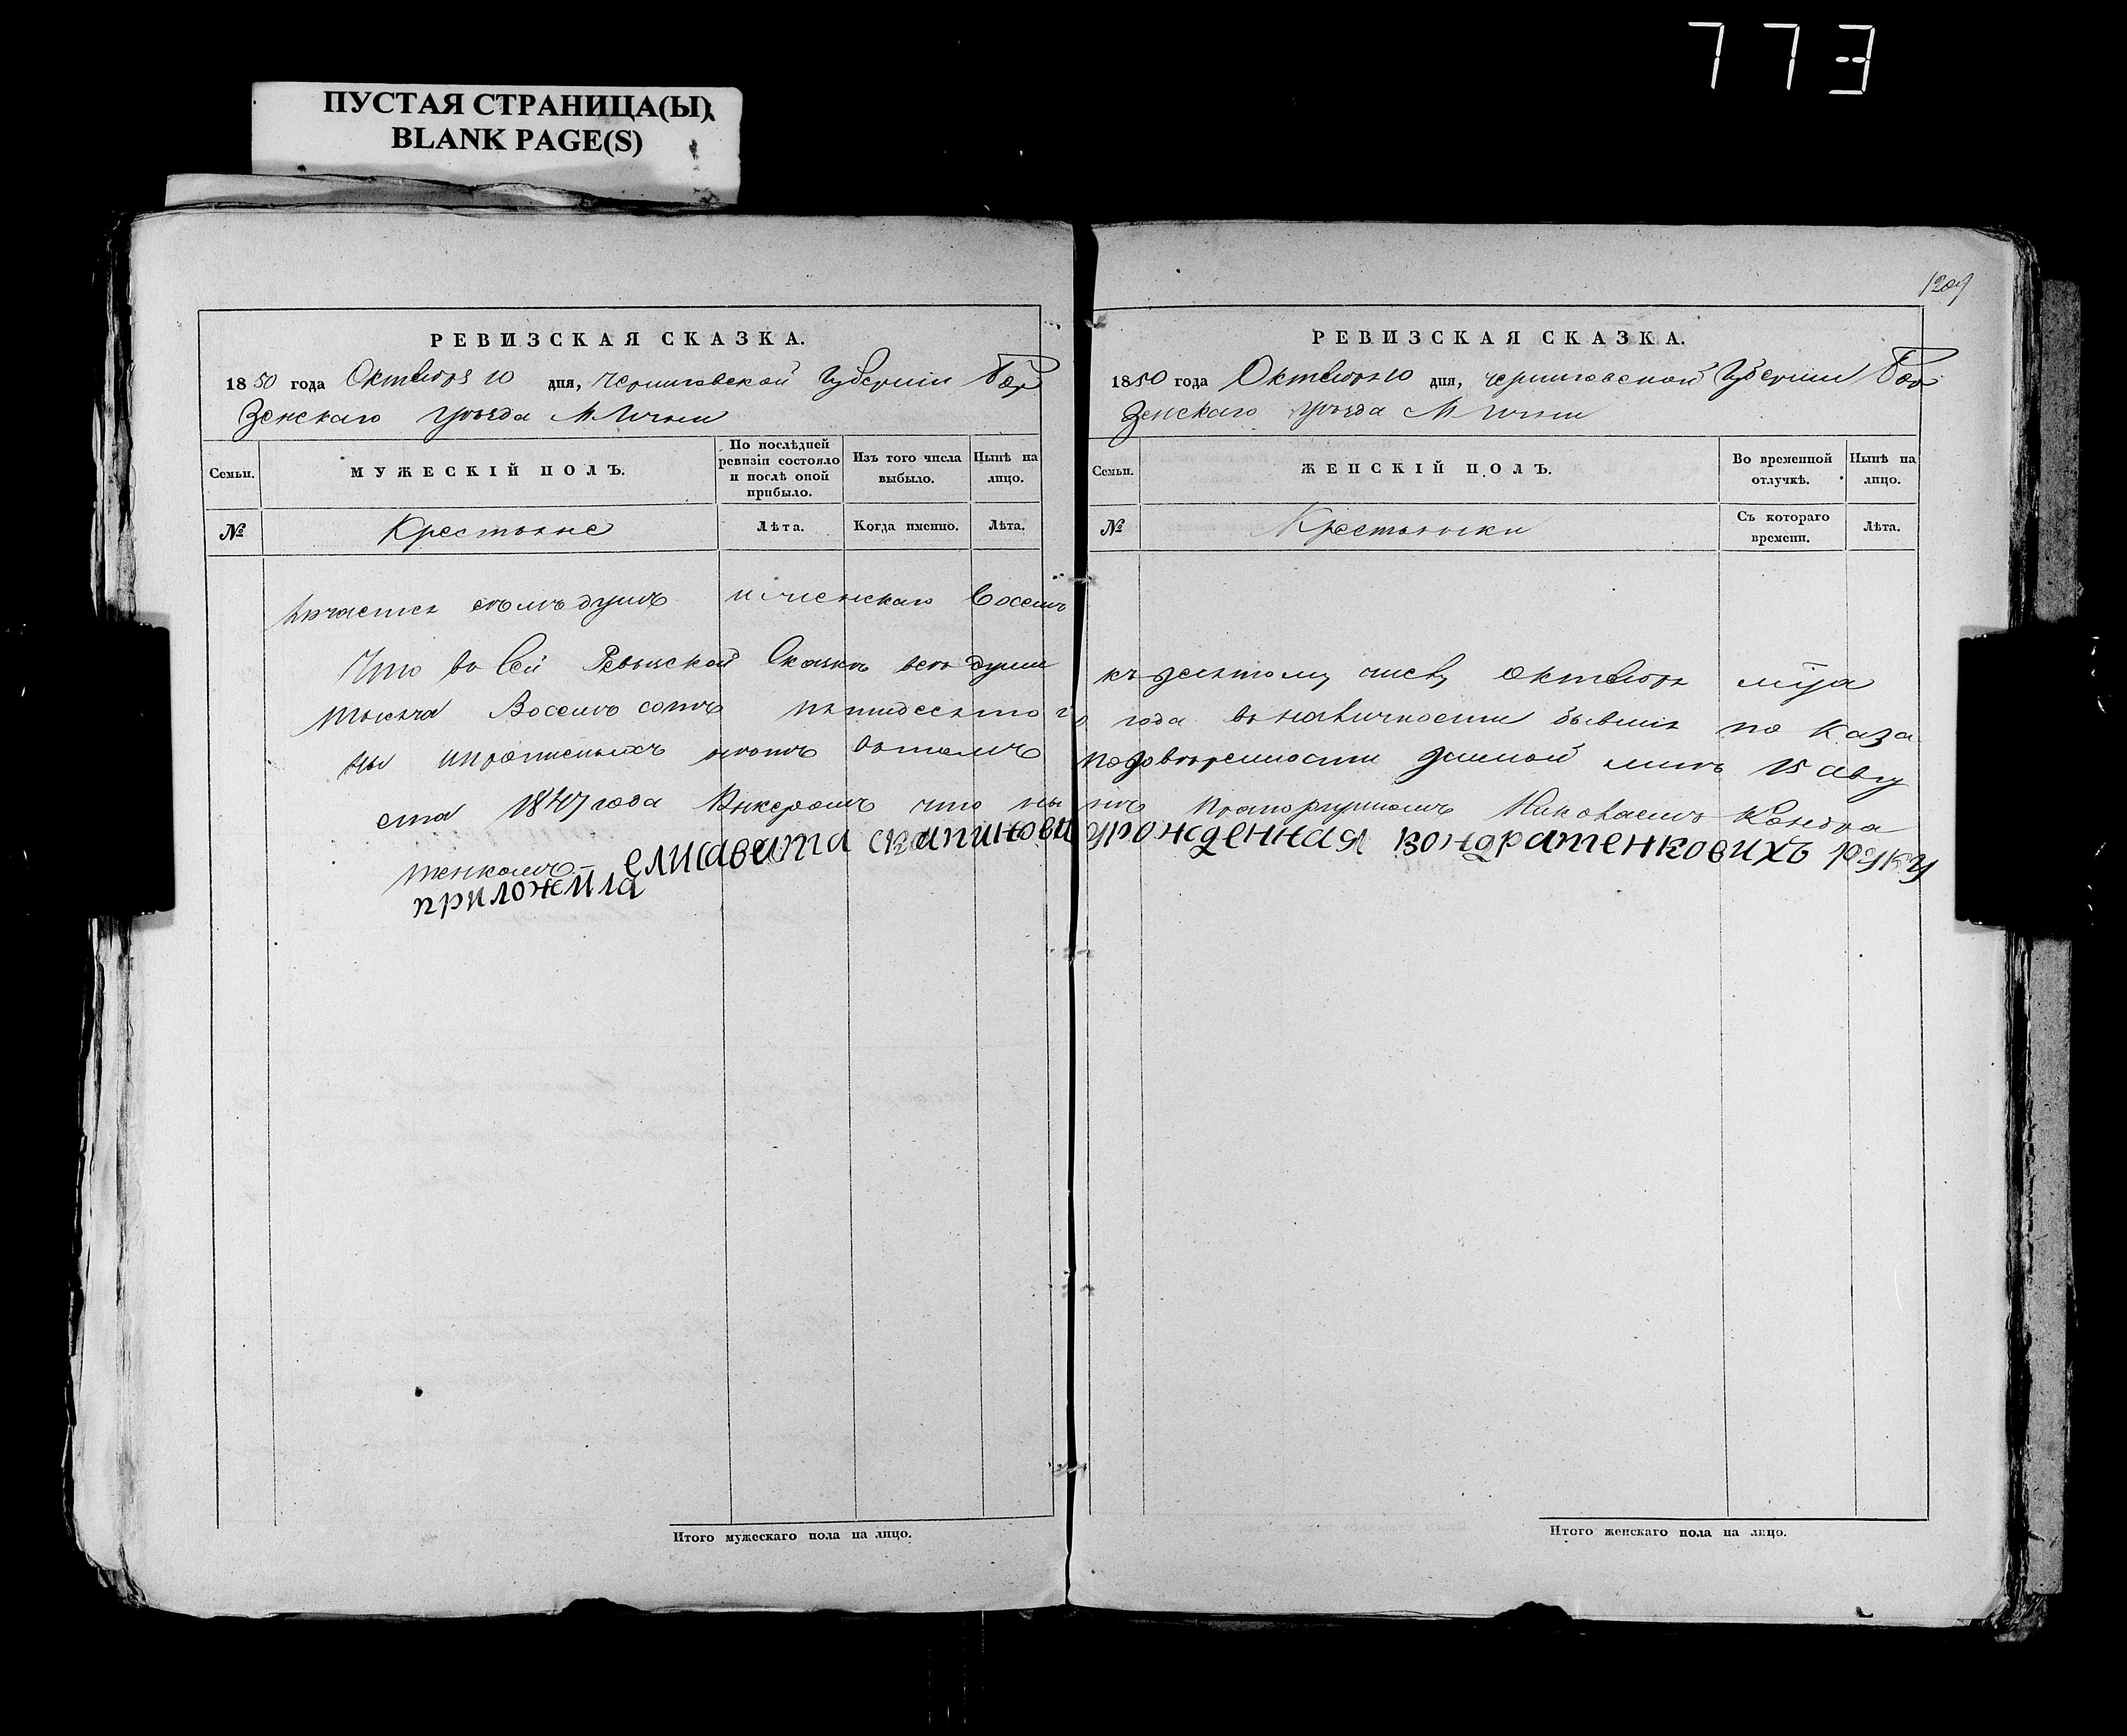 773
ПУСТАЯ СТРАНИЦА(Ы)
BLANK PAGE(S)
1209
РЕВИЗСКАЯ СКАЗКА.
1850 года Октября 10 дня, Черниговской Губерніи Бор
зенскаго уѣзда М Ични
Семьи.
МУЖЕСКІЙ ПОЛЪ.
По послѣдней ревизіи состояло и послѣ оной прибыло.
Изъ того числа выбыло.
Нынѣ на лицо.
№
Крестьяне
Лѣта.
Когда именно.
Лѣта.
РЕВИЗСКАЯ СКАЗКА.
1850 года Октября 10 дня, Черниговской Губерніи Бор
зенскаго уѣзда М Ични
Семьи.
ЖЕНСКІЙ ПОЛЪ.
Во временной отлучкѣ.
Нынѣ на лицо.
№
Крестьянки
Съ котораго времени.
Лѣта.
душъ женскаго Восемь
Что во Сей Ревизской Сказкѣ всѣ души къ десятому числу Октября мѣца
тысяча Восемь сотъ пятидесятого года въ наличности бывшія по каза
ны и прописныхъ нѣтъ вотомъ по довѣренности данной мнѣ 15 Авгу
ста 1847 года что ны нѣ Прапорщикомъ Николаемъ Кондра
тенкомъ – елисавета урожденная кондратенковихъ руку
приложила
Итого мужескаго пола на лицо.
Итого женскаго пола на лицо.